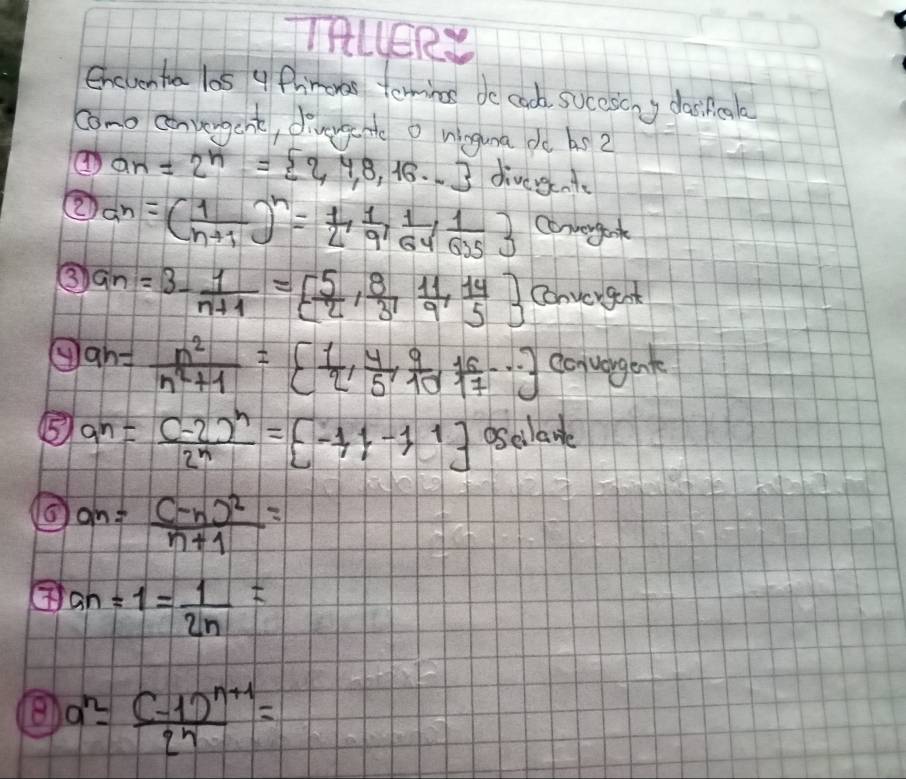 TALLER
Encuentra los 4 Primeros terminos de cada sucesion y clasificala
como convergente, divergente o ninguna de las 2
① an = 2^n = {2, 4, 8, 16...} divergente
② an = (1/(n+1))^n = 1/2, 1/9, 1/64, 1/635} Convergente
③ an = 3 - 1/(n+1) = {5/2, 8/3, 11/9, 14/5} Convergente
④ an = n^2/(n^2+1) = {1/2, 4/5, 9/10, 16/17 ...} convergente
⑤ an = (-2)^n/2^n = {-1, 1, -1, 1} oscilante
⑥ an = (-n)^2/(n+1) =
⑦ an = 1 = 1/2n =
⑧ an = (-1)^(n+1)/2^n =